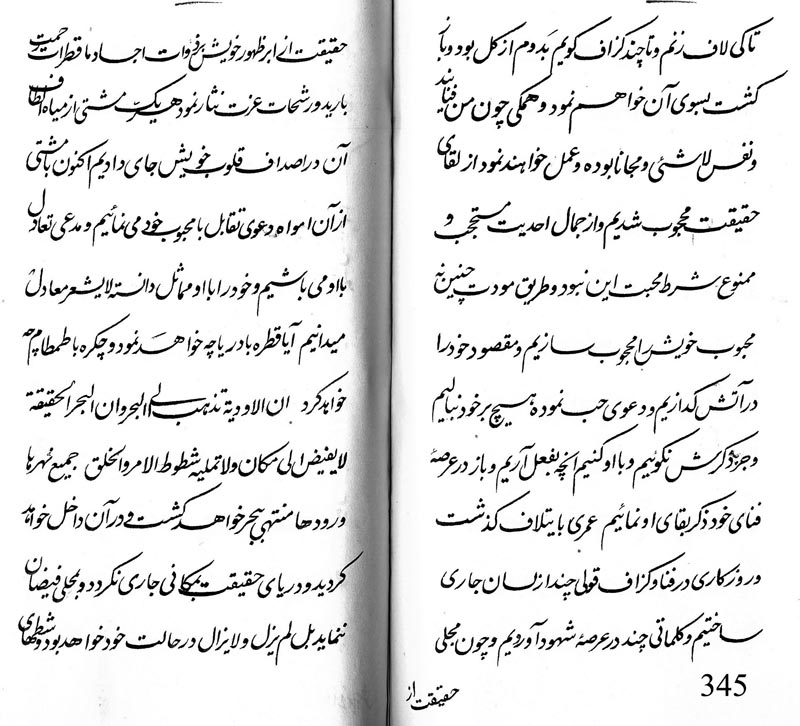 تاکی لاف زنم و تا چند گزاف گویم بَدوم از کل بود و باز
گشت بسوی آن خواهم نمود و همگی چون من فنایند
و نفس لاشئی و مجانا بوده و عمل خواهند نمود از لقای
حقیقت محجوب شدیم و از جمال احدیت مستحجب و
ممنوع شرط محبت این نبود و طریق مودت چنین نه
محبوب خویش را محجوب سازیم و مقصود خود را
در آتش گدازیم و دعوی حب نموده هیچ بر خود نبالیم
و جز بذکرش نگوئیم و با او کنیم انچه بفعل آریم و باز در عرصهٔ
فنای خود ذکر بقای او نمائیم عمری بایتلاف گذشت
و روزگاری در فنا و گزاف قولی چند از لسان جاری
ساختیم و کلماتی چند در عرصهٔ شهود آوردیم و چون مجلی
حقیقت از
345
حقیقت از ابر ظهور خویش بر ذروات اجساد ما قطرات رحمت
بارید و رشحات عزت نثار نمود هر یک مشتی از میاه الطاف
آن در اصداف قلوب خویش جای دادیم اکنون با مشتی
از آن امواه دعوی تقابل با محبوب خود می نمائیم و مدعی تعادل
با او می باشیم و خود را با او مماثل دانسته لایشعر معادل
میدانیم آیا قطره با دریا چه خواهد نمود و چکره با طمطام چه
خواهد کرد ان الاودیة تذهب الی البحر و ان البحر الحقیقة
لایفیض الی مکان ولا تملیه شطوط الامر و الخلق جمیع نهرها
و رودها منتهی ببحر خواهد گشت و در آن داخل خواهد
گردید و دریای حقیقت بمکانی جاری نگردد و بمحلی فیضان
ننماید بل لم یزل و لا یزال در حالت خود خواهد بود و شطهای